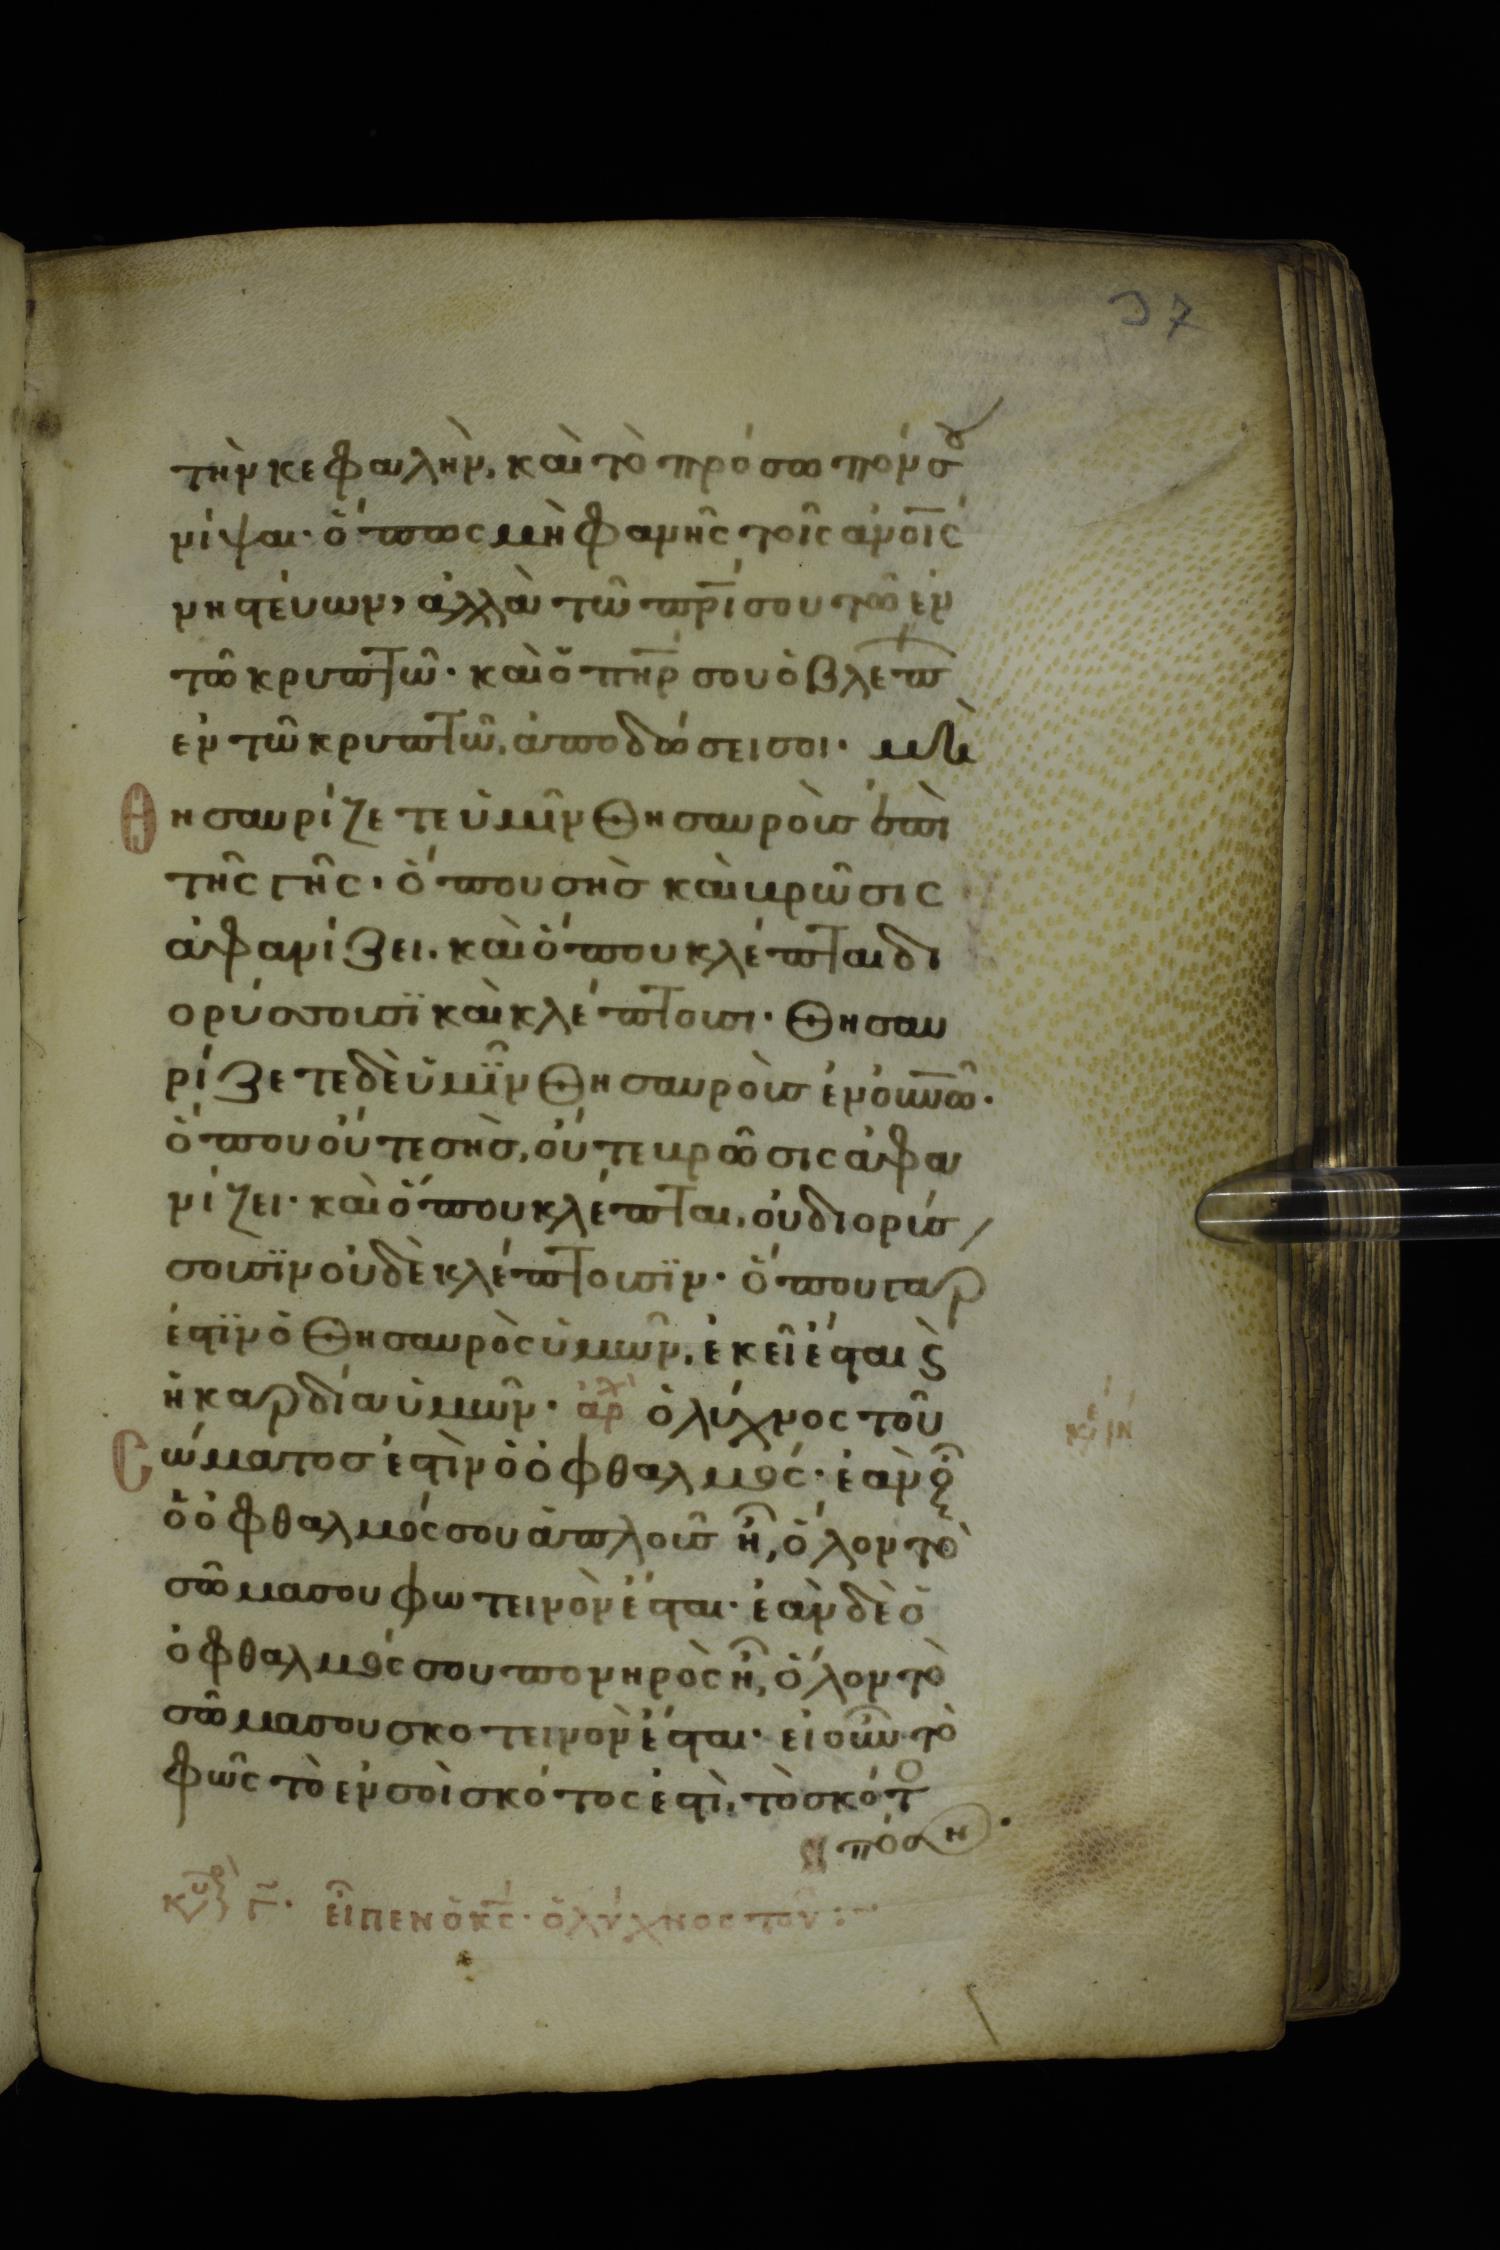 37
τὴν κεφαλὴν, καὶ τὸ πρόσωπόν σου
νίψαι· ὅπως μὴ φανῆς τοῖς ἀνοῖς
νηστέυων, ἀλλὰ τῶ πρί σου τῶ ἐν
τῶ κρυπτῶ· καὶ ὁ πηρ σου ὁ βλέπων
ἐν τῶ κρυπτῶ, ἀποδώσει σοι· μὴ
θησαυρίζετε ὑμῖν θησαυροὺσ ἐπὶ
τῆς γῆς· ὅπου σὴσ καὶ βρῶσις
ἀφανίζει. καὶ ὅπου κλέπται δι
ορύσσουσϊ καὶ κλέπτουσι· θησαυ
ρίζετε δὲ ὑμῖν θησαυροὺσ ἐν οὐνῶ·
ὅπου οὔτε σὴσ, οὔτε βρῶσις ἀφα
νίζει· καὶ ὅπου κλέπται, οὐ διορίσ
σουσϊν οὐδὲ κλέπτουσϊν· ὅπου γαρ
ἐστϊν ὁ θησαυρὸς ὑμῶν, ἐκεῖ ἔσται ϛ
ἡ καρδία ὑμῶν· ἀρχ ὁ λύχνος τοῦ
σώματοσ ἐστὶν ὁ ὀφθαλμός· ἐὰν οὖν
ὁ ὀφθαλμός σου ἁπλοῦσ ἦ, ὅλον τὸ
σῶμα σου φωτεινὸν ἔσται· ἐὰν δὲ ὁ
ὀφθαλμός σου πονηρὸς ἦ, ὅλον τὸ
σῶμα σου σκοτεινὸν ἔσται· εἰ οὖν τὸ
φῶς τὸ ἐν σοὶ σκότος ἐστὶ, τὸ σκότο
πόσον·
κυρ γ· εἶπεν ὁ κς· ὁ λύχνος τοῦ: